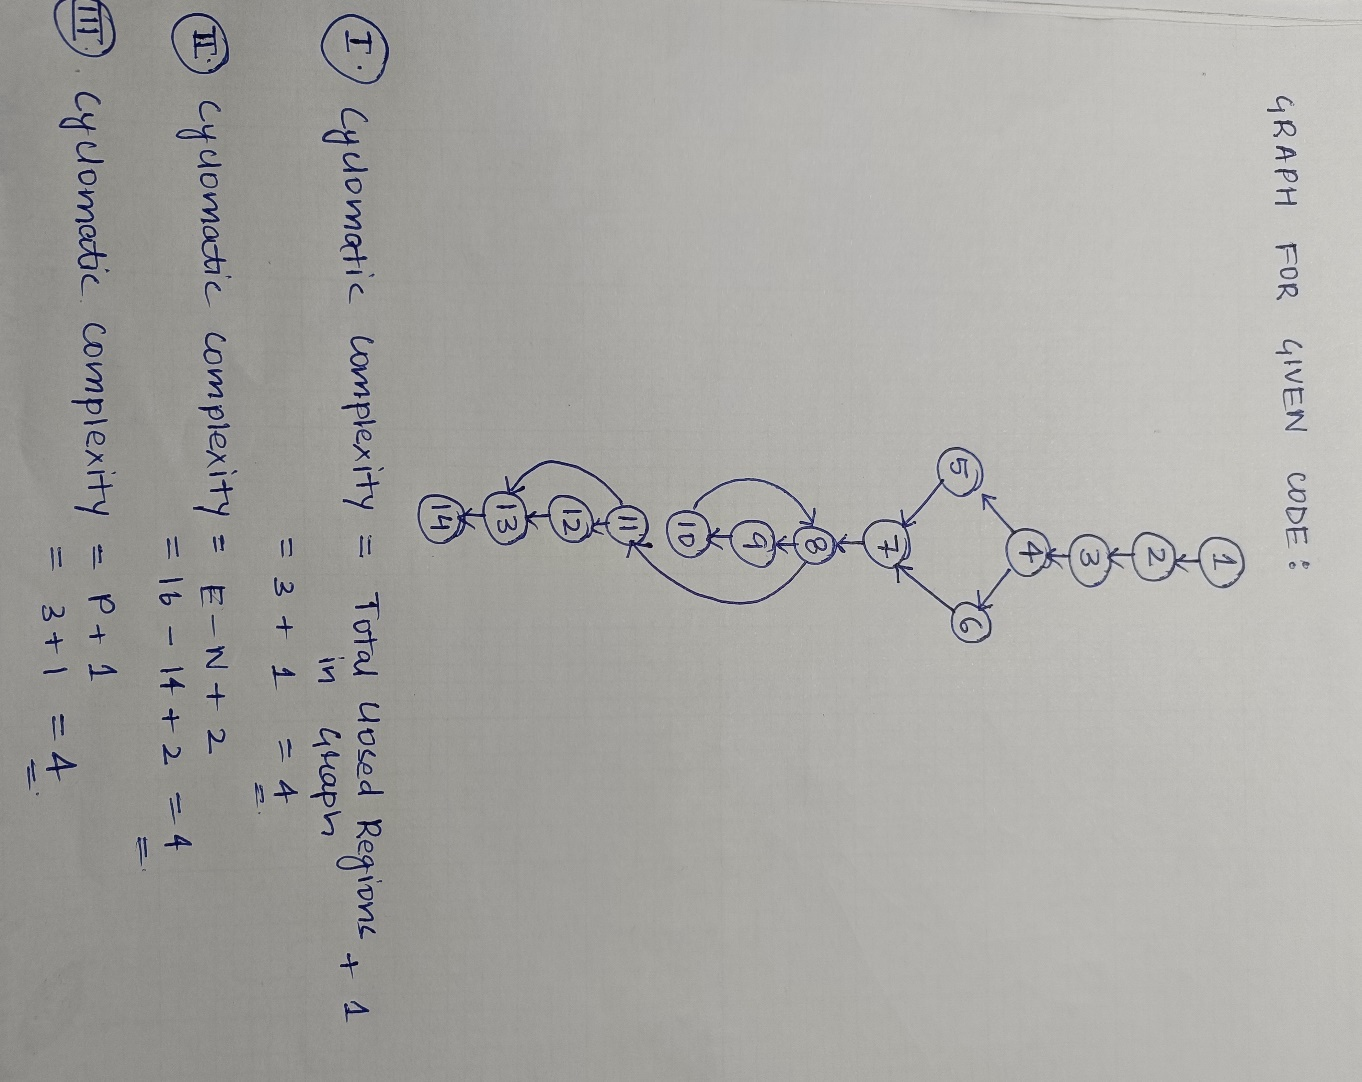 GRAPH FOR GIVEN CODE :
1
2
3
4
5
6
7
8
9
10
11
12
13
14
I. Cyclomatic complexity = Total Closed Regions + 1
in Graph
= 3 + 1 = 4
II. Cyclomatic complexity = E - N + 2
= 16 - 14 + 2 = 4
III. Cyclomatic complexity = P + 1
= 3 + 1 = 4